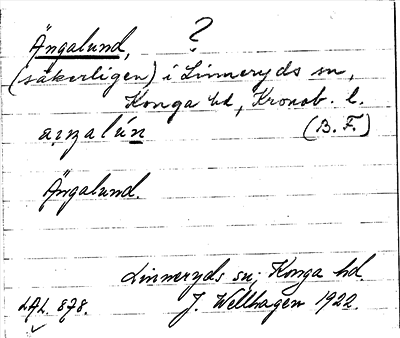 Ängalund, ?
(säkerligen) i Linneryds sn,
Konga hd, Kronob. l.
aŋalún (B. F.)
Ängalund.
Linneryds sn; Konga hd.
LAL. 878. J. Wellhagen 1922.